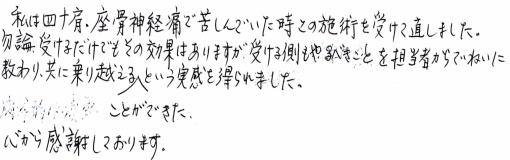 私は四十肩、座骨神経痛で苦しんでいた時この施術を受けて直しました。
勿論受けるだけでもその効果はありますが受ける側もやるべきことを担当者からていねいに
教わり、共に乗り越えるという実感を得られました。
ことができた、
心から感謝しております。